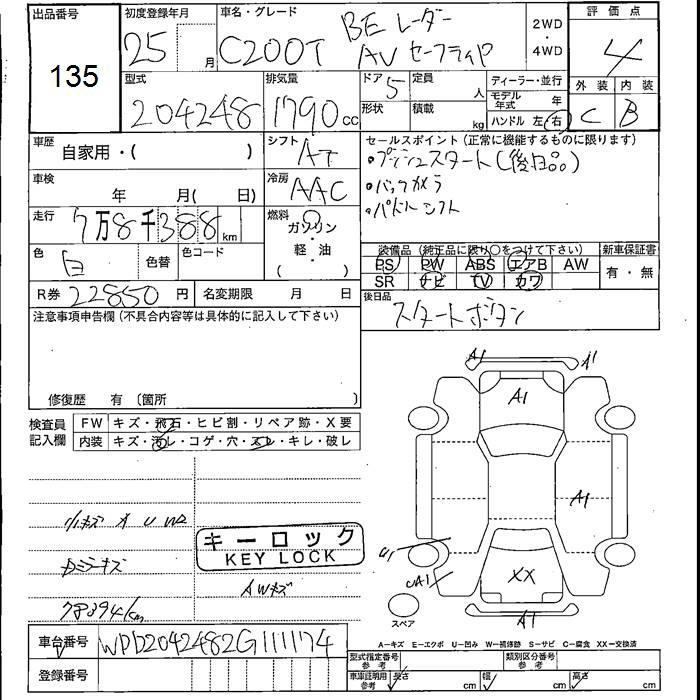 出品番号
135
初度登録年月
25 月
車名・グレード
C200T BE レーダー
AV セーフティP
2WD
・
4WD
評価点
4
外装 内装
C B
型式
204248
排気量
1790 cc
ドア
5
形状
定員
人
積載
kg
ディーラー・並行
モデル年式 年
ハンドル 左・右
車歴
自家用・( )
シフト
AT
車検
年 月( 日)
冷房
AAC
走行
7万8千388 km
燃料
ガソリン
・
軽・油
( )
色
白
色替
色コード
R券 22850 円
名変期限 月 日
セールスポイント(正常に機能するものに限ります)
・プッシュスタート(後日品)
・バックカメラ
・パドルシフト
装備品(純正品に限り○をつけて下さい)
PS PW ABS エアB AW
SR ナビ TV カワ
新車保証書
有・無
後日品
スタートボタン
注意事項申告欄(不具合内容等は具体的に記入して下さい)
修復歴 有(箇所 )
検査員
記入欄
FW キズ・飛石・ヒビ割・リペア跡・X要
内装 キズ・汚レ・コゲ・穴・スレ・キレ・破レ
キーロック
KEY LOCK
AWキズ
Dミラーキズ
78394km
A1
A1
A1
A1
XX
UA1
スペア
A-キズ E-エクボ U-凹み W-補修跡 S-サビ C-腐食 XX-交換済
車台番号 WDD2042482G111174
登録番号
型式指定番号
参考
類別区分番号
参考
車庫証明用
参考
長さ cm
幅 cm
高さ cm